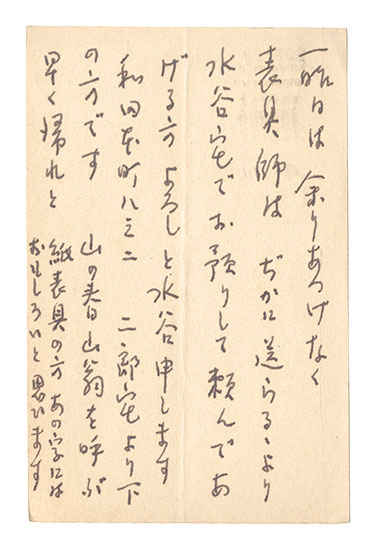 一昨日は余りあつけなく
表具師は ぢかに送らるゝより
水谷宅でお預りして頼んであ
げる方 よろしと水谷申します
和田本町八三二 二郎宅より下
の方です 山の春山翁を呼ぶ
早く帰れと 紙表具の方あの字には
おもしろいと思ひます